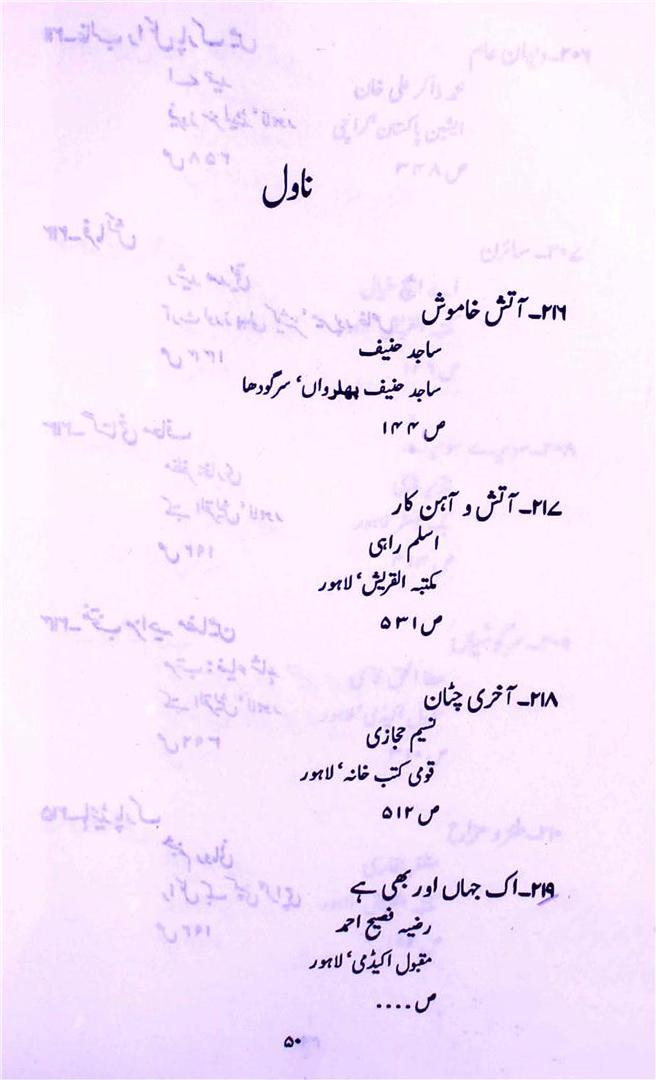 ناول
۲۱۶۔ آتش خاموش
ساجد حنیف
ساجد حنیف پھلرواں، سرگودھا
ص ۱۴۴
۲۱۷۔ آتش و آہن کار
اسلم راہی
مکتبہ القریش، لاہور
ص ۵۳۱
۲۱۸۔ آخری چٹان
نسیم حجازی
قومی کتب خانہ، لاہور
ص ۵۱۲
۲۱۹۔ اک جہاں اور بھی ہے
رضیہ فصیح احمد
مقبول اکیڈمی، لاہور
ص ....
۵۰